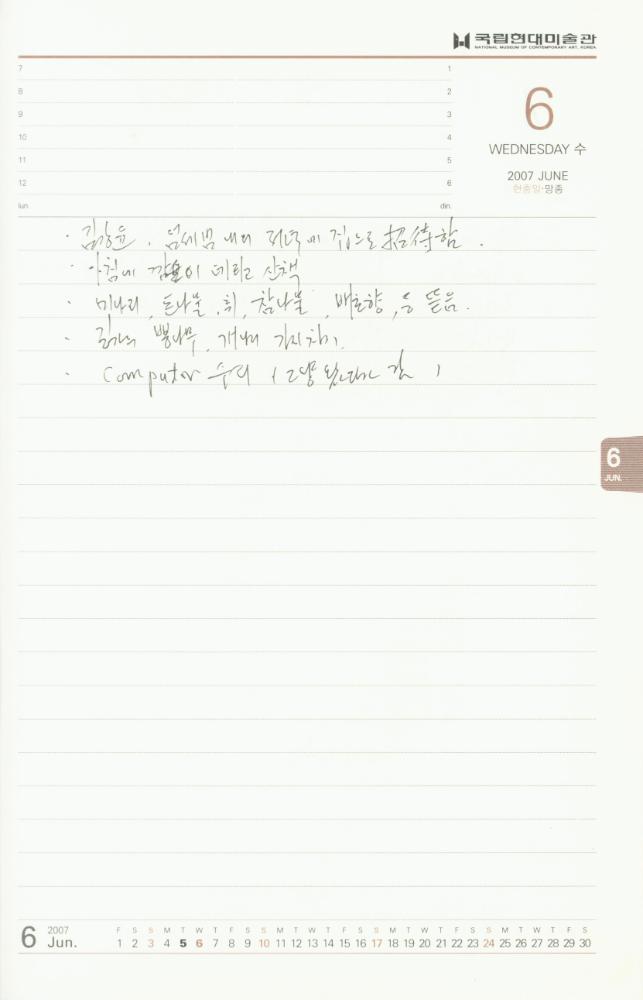 국립현대미술관
NATIONAL MUSEUM OF CONTEMPORARY ART, KOREA
7 1
8 2
9 3
10 4
11 5
12 6
lun. din.
6
WEDNESDAY 수
2007 JUNE
현충일·망종
· 김창윤, 내외 저녁에 집으로 招待함.
· 아침에 이 데리고 산책
· 미나리, 돈나물, 취, 참나물, 배초향, 등 뜯음.
· 뽕나무, 개나리 가지치기.
· Computor 수리 (
6
JUN.
6 2007 Jun.
F S S M T W T F S S M T W T F S S M T W T F S S M T W T F S
1 2 3 4 5 6 7 8 9 10 11 12 13 14 15 16 17 18 19 20 21 22 23 24 25 26 27 28 29 30